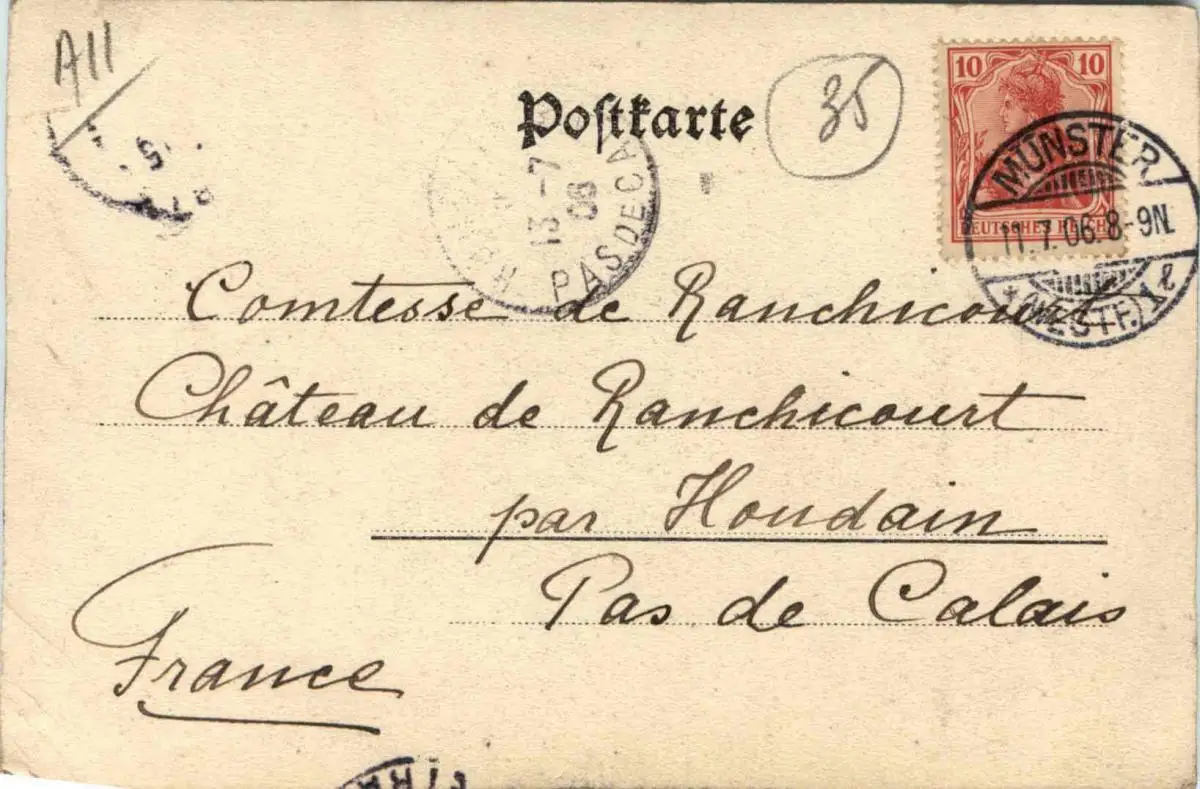 A11
Postkarte
35
10 10
DEUTSCHES REICH
MÜNSTER
11.7.06.8-9N.
*(WESTF.)1 l
13 -7
06
PAS DE CA
Comtesse de Ranchicourt
Château de Ranchicourt
par Houdain
Pas de Calais
France